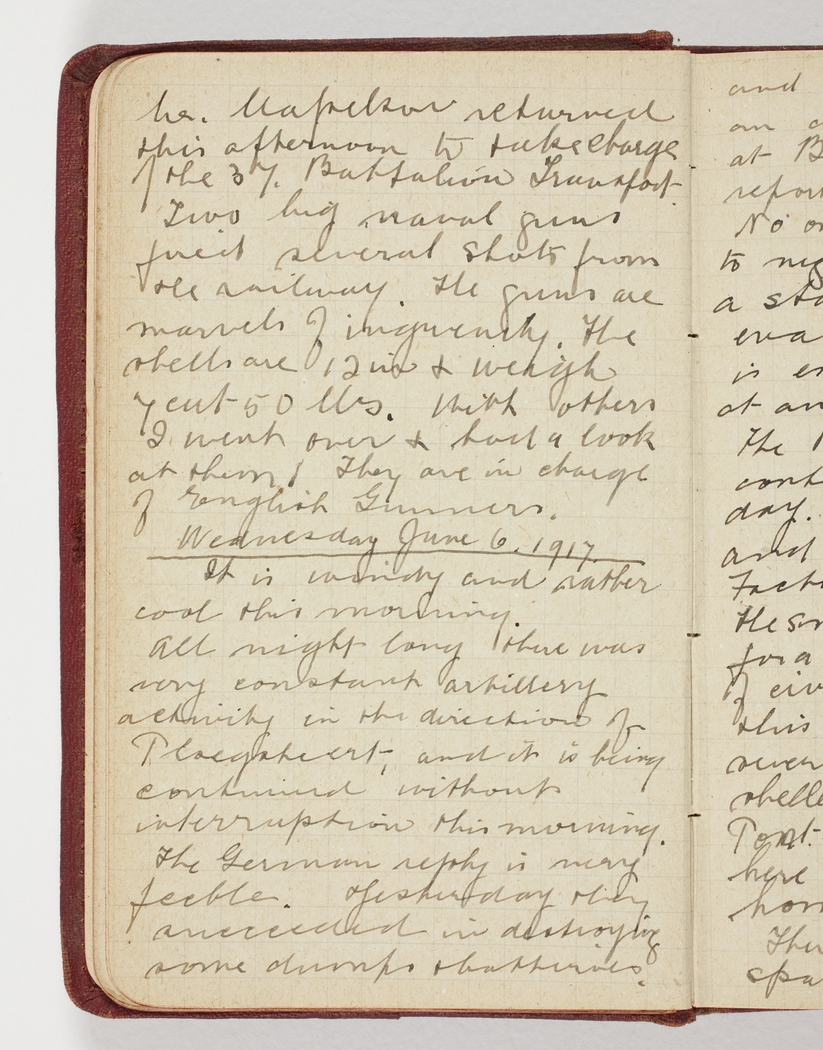 returned
this afternoon to take charge
of the 37. Battalion Transport.
Two big naval guns
fired several shots from
the railway. The guns are
marvels of ingenuity. The
shells are 12 in & weigh
7 cwt 50 lbs. With others
I went over & had a look
at them! They are in charge
of English Gunners.
Wednesday June 6. 1917.
It is windy and rather
cool this morning.
All night long there was
very constant artillery
activity in the direction of
Ploegsteert, and it is being
continued without
interruption this morning.
The German reply is very
feeble. Yesterday they
succeeded in destroying
some dumps & batteries.
and
at B
No
to
a
is
at
The
day.
and
for a
of
this
Pont.
here